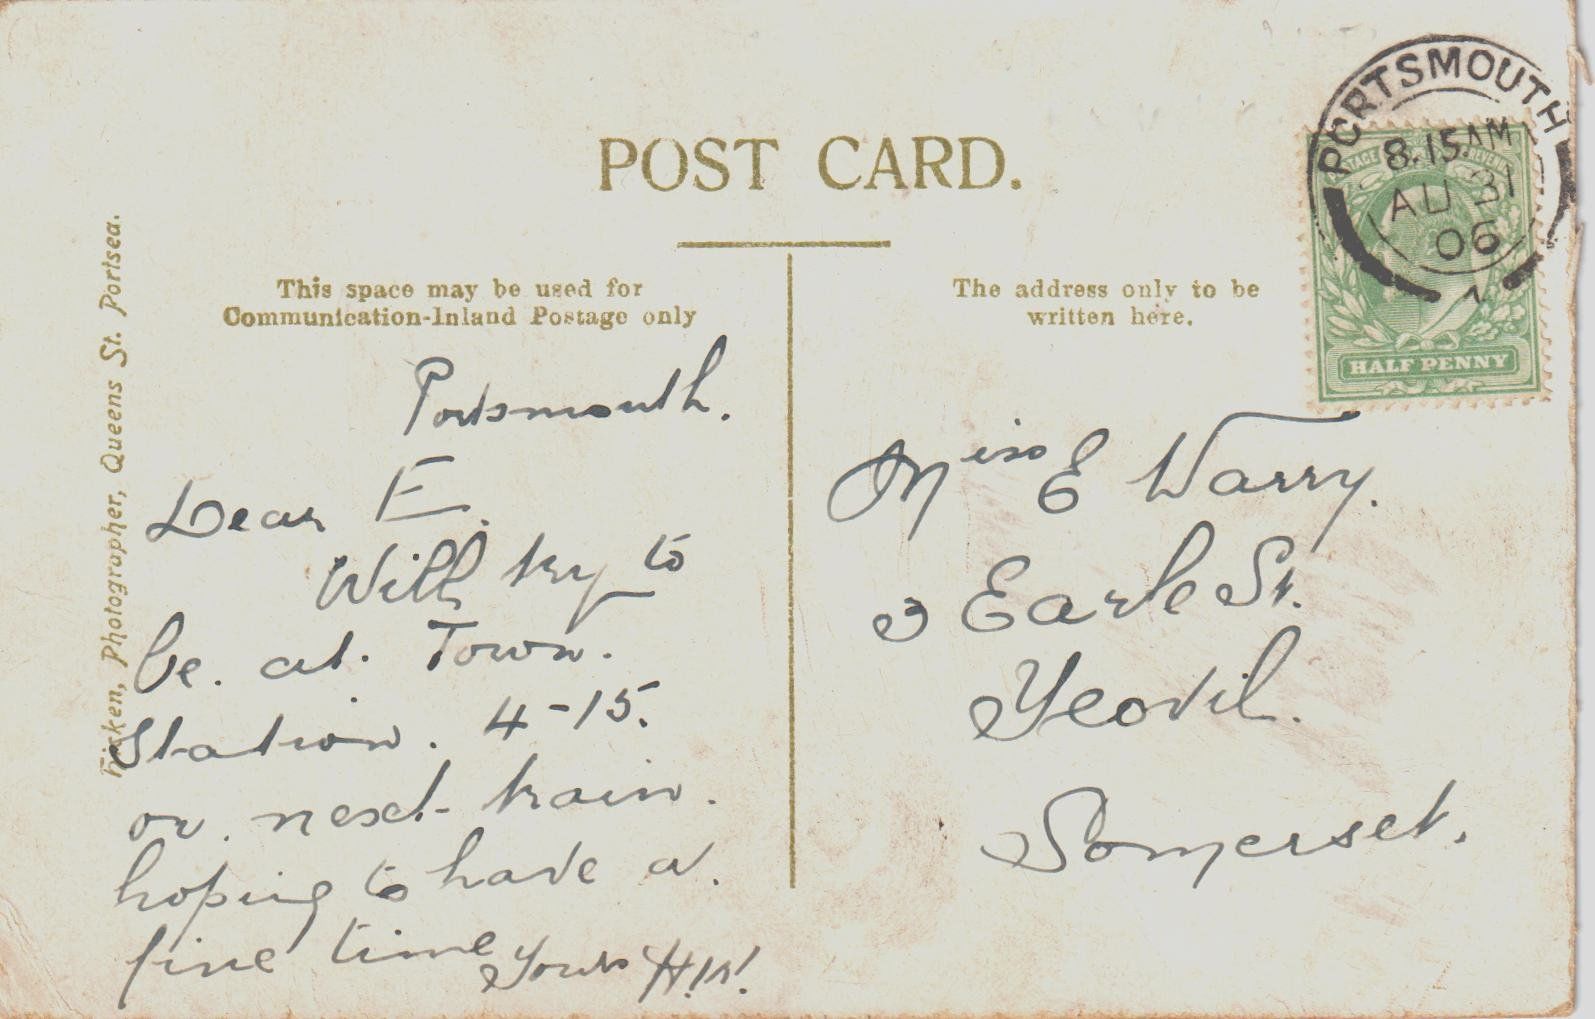 POST CARD.
This space may be used for
Communication-Inland Postage only
The address only to be
written here.
Photographer, Queens St. Portsea.
PORTSMOUTH
8.15 AM
AU 31
06
POSTAGE REVENUE
HALF PENNY
Portsmouth.
Dear E.
Will try to
be. at. Town.
Station. 4-15.
or. next- train.
hoping to have a.
fine time
Yours H.W.
Miss E Warry.
3 Earle St.
Yeovil.
Somerset.